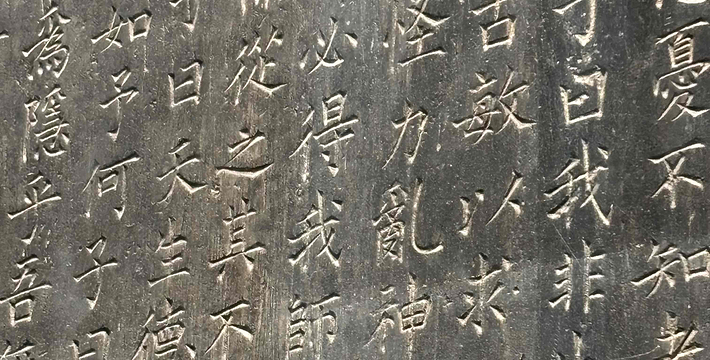 憂不知老
子曰我非
古敏以求
怪力亂神
必得我師
從之其不
子曰天生德
如予何子曰
為隱乎吾